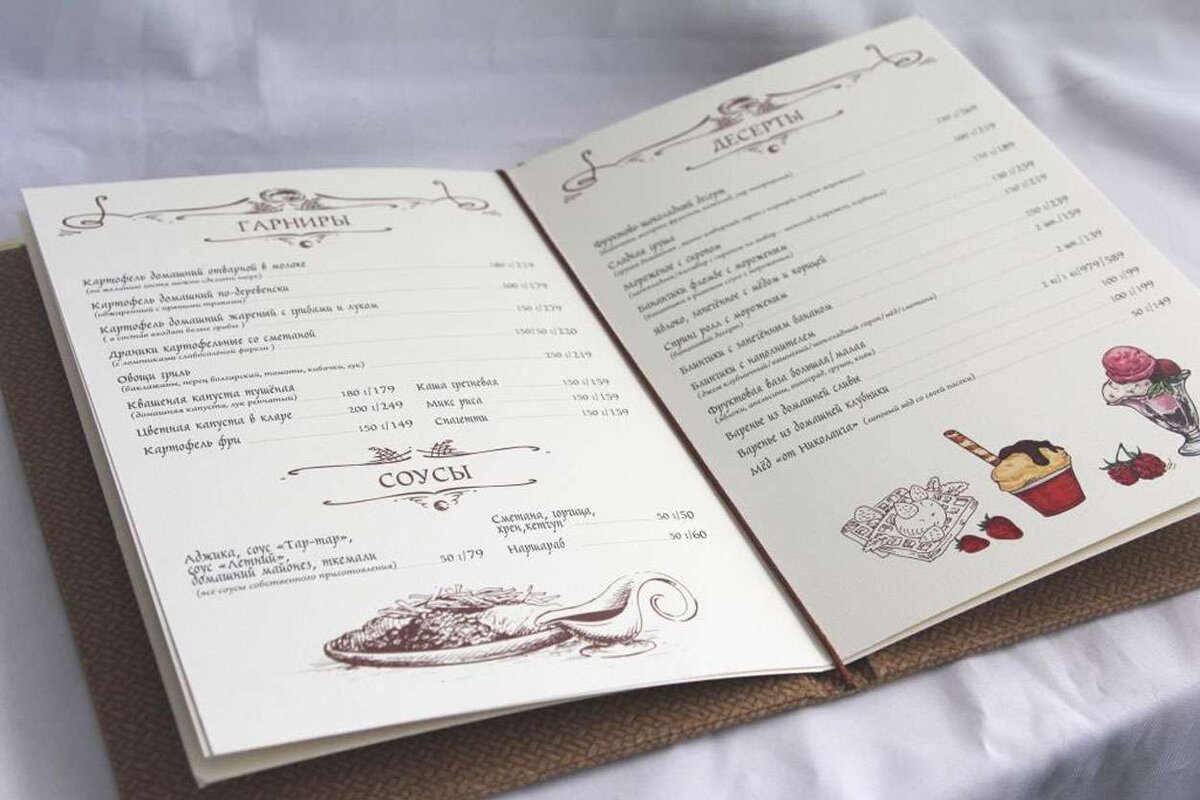 ГАРНИРЫ
Картофель домашний отварной в молоке 180 г/219
(по желанию гостя можно сделать пюре)
Картофель домашний по-деревенски 200 г/179
(обжаренный с пряными травами)
Картофель домашний жарений с грибами и луком 150 г/279
( в состав входят белые грибы )
Драники картофельные со сметаной 150/50 г/220
(с ломтиками слабосолёной форели )
Овощи гриль 250 г/219
(баклажаны, перец болгарский, томаты, кабачки, лук)
Квашеная капуста тушёная 180 г/179
(домашняя капуста, лук репчатый)
Цветная капуста в кляре 200 г/249
Картофель фри 150 г/149
Каша гречневая 150 г/159
Микс риса 150 г/159
Спагетти 150 г/159
СОУСЫ
Аджика, соус «Тар-тар»,
соус «Летний»,
домашний майонез, ткемали 50 г/79
(все соусы собственного приготовления)
Сметана, горчица,
хрен,кетчуп 50 г/50
Наршараб 50 г/60
ДЕСЕРТЫ
Фруктово-шоколадный десерт 250 г/269
Сладкая груша 200 г/219
Мороженое с сиропом 150 г/189
Бананчики фламбе с мороженым 130 г/259
Яблоко, запечённое с мёдом и корицей 150 г/219
Спринг ролл с мороженым 150 г/239
(банановый десерт)
Блинчики с запечённым бананом 2 шт./159
Блинчики с наполнителем 2 шт./139
(джем клубничный/вишнёвый/шоколадный сироп/мёд/сметана)
Фруктовая ваза большая/малая 2 кг/1 кг/979/589
(яблоки, апельсины, виноград, груши, киви)
Варенье из домашней сливы 100 г/99
Варенье из домашней клубники 100 г/199
Мёд «от Николаича» (липовый мёд со своей пасеки) 50 г/149